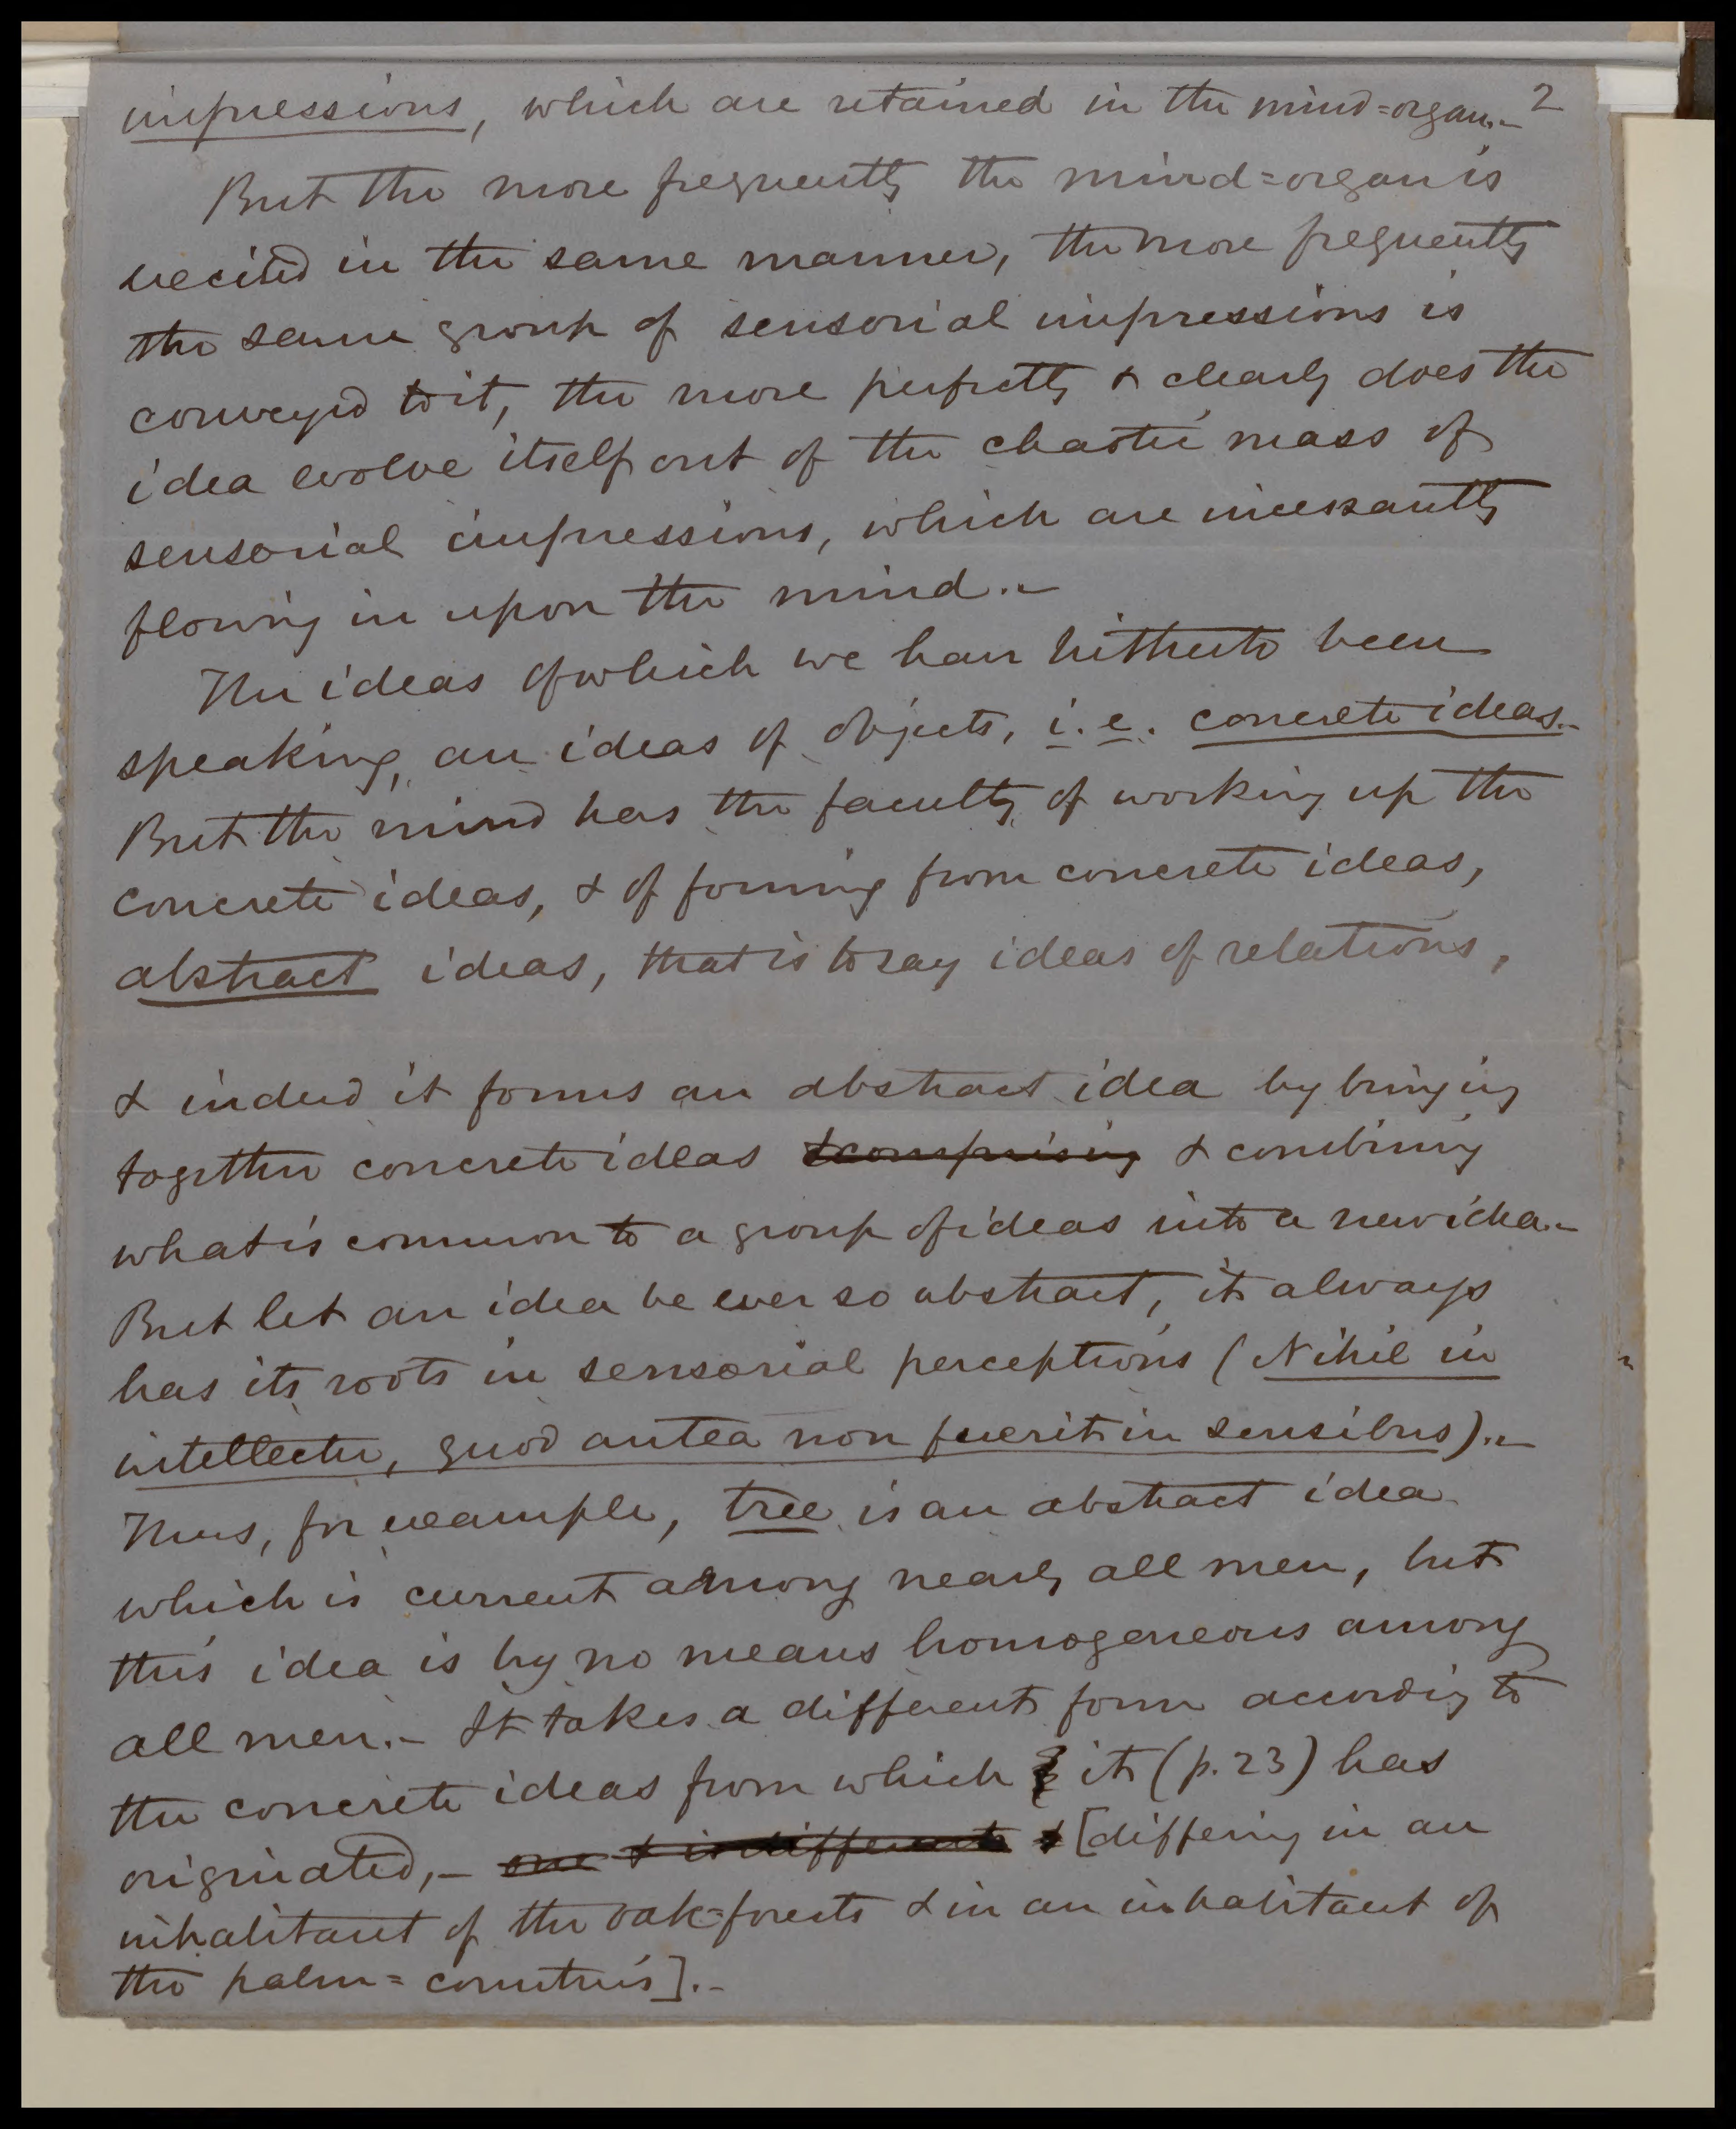 impressions, which are retained in the mind=organ.- 2
But the more frequently the mind=organ is
excited in the same manner, the more frequently
the same group of sensorial impressions is
conveyed to it, the more perfectly & clearly does the
idea evolve itself out of the chaotic mass of
sensorial impressions, which are incessantly
flowing in upon the mind.-
The ideas of which we have hitherto been
speaking, are ideas of objects, i.e. concrete ideas.-
But the mind has the faculty of working up the
concrete ideas, & of forming from concrete ideas,
abstract ideas, that is to say ideas of relations,
& indeed it forms an abstract idea by bringing
together concrete ideas & comprising & combining
what is common to a group of ideas into a new idea.-
But let an idea be ever so abstract, it always
has its roots in sensorial perceptions (Nihil in
intellectu, quod antea non fuerit in sensibus).-
Thus, for example, tree is an abstract idea
which is current among nearly all men, but
this idea is by no means homogeneous among
all men.- It takes a different form according to
the concrete ideas from which it (p. 23) has
originated,- one & is different & [differing in an
inhabitant of the oak=forests & in an inhabitant of
the palm=countries].-